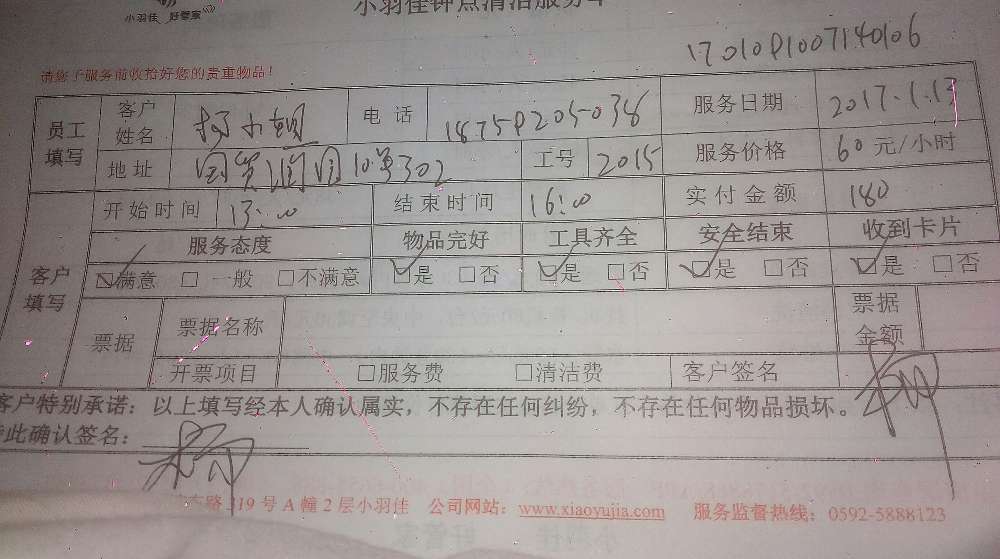 小羽佳 好管家
小羽佳钟点清洁服务单
1701081007140106
请您于服务前收拾好您的贵重物品!
员工填写 客户姓名 杨小姐 电话 18759205038 服务日期 2017.1.13
地址 国贸润园10单302 工号 2015 服务价格 60元/小时
开始时间 13:00 结束时间 16:00 实付金额 180
客户填写 服务态度 物品完好 工具齐全 安全结束 收到卡片
☑满意 □一般 □不满意 ☑是 □否 ☑是 □否 ☑是 □否 ☑是 □否
票据 票据名称 票据金额
开票项目 □服务费 □清洁费 客户签名
客户特别承诺:以上填写经本人确认属实,不存在任何纠纷,不存在任何物品损坏。
特此确认签名:
东路319号A幢2层小羽佳 公司网站:www.xiaoyujia.com 服务监督热线:0592-5888123